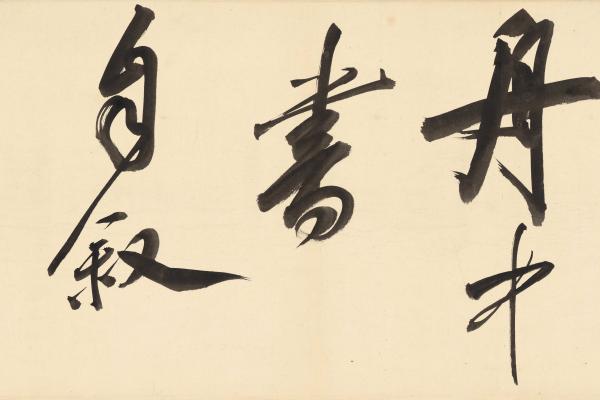 舟中
書
自叙